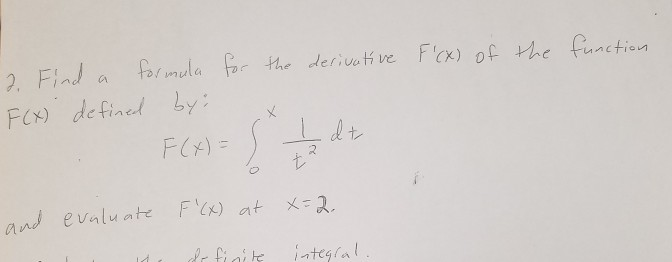 2. Find a formula for the derivative F'(x) of the function
F(x) defined by:
F(x) = ∫₀ˣ 1/t² dt
and evaluate F'(x) at x=2.
definite integral.